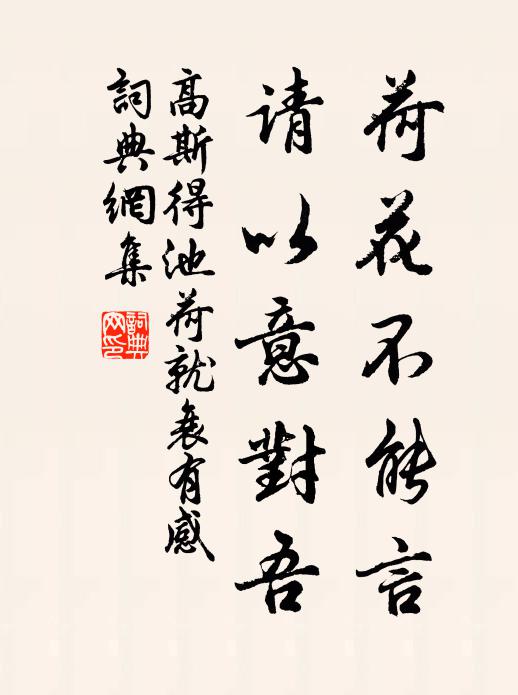 荷花不能言
请以意對吾
高斯得池荷就衰有感
詞典網集
詞典網印